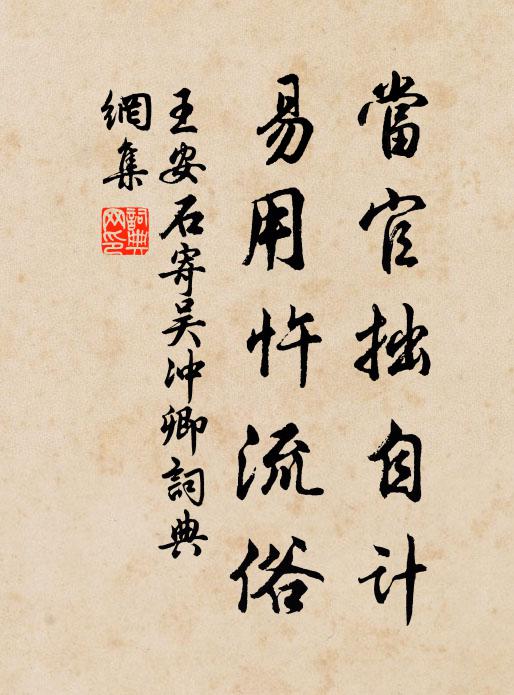 當官拙自計
易用忤流俗
王安石寄吴冲卿詞典
網集
詞典網印